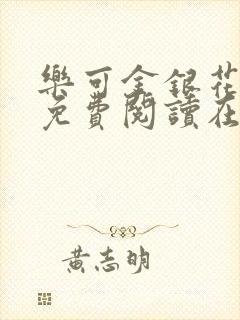 樂可金銀花
免費閱讀在
黃志明